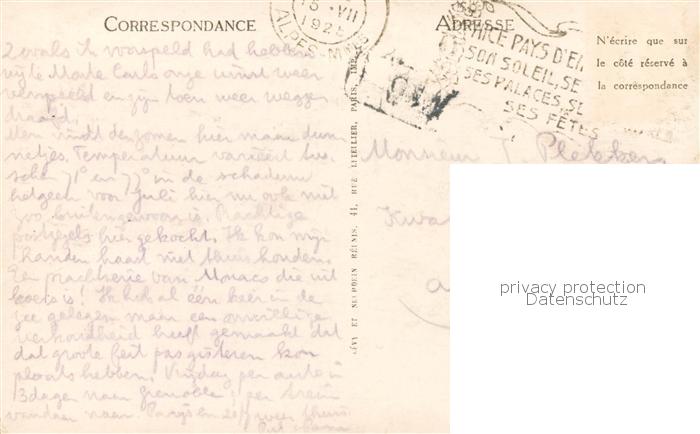 CORRESPONDANCE
ADRESSE
15 · VII
192
ALPES-M
NICE PAYS D'E
SON SOLEIL, SE
SES PALACES, SE
SES FÊTES
N'écrire que sur
le côté réservé à
la correspondance
LÉVY ET NEURDEIN RÉUNIS, 44, RUE LETELLIER, PARIS, IMP.
Zooals ik voorspeld had hebben
wij te Monte Carlo onze winst weer
verspeeld en zijn toen weer wegge
draaid.
Men vindt den zomer hier maar dun
netjes. Temperatuur varieert tus
schen 71° en 77° in de schaduw
hetgeen voor Juli hier nu ook niet
zoo buitengewoon is. Prachtige
postzegels hier gekocht. Ik kon mijn
handen haast niet thuis houden.
Een prachtserie van Monaco die uit
koers is! Ik heb al één keer in de
zee gelegen maar een onwillige
verkoudheid heeft gemaakt dat
dat groote feit pas gisteren kon
plaats hebben. Vrijdag per auto in
3 dagen naar Grenoble, per trein
vandaar naar Parijs en weer thuis
Monsieur